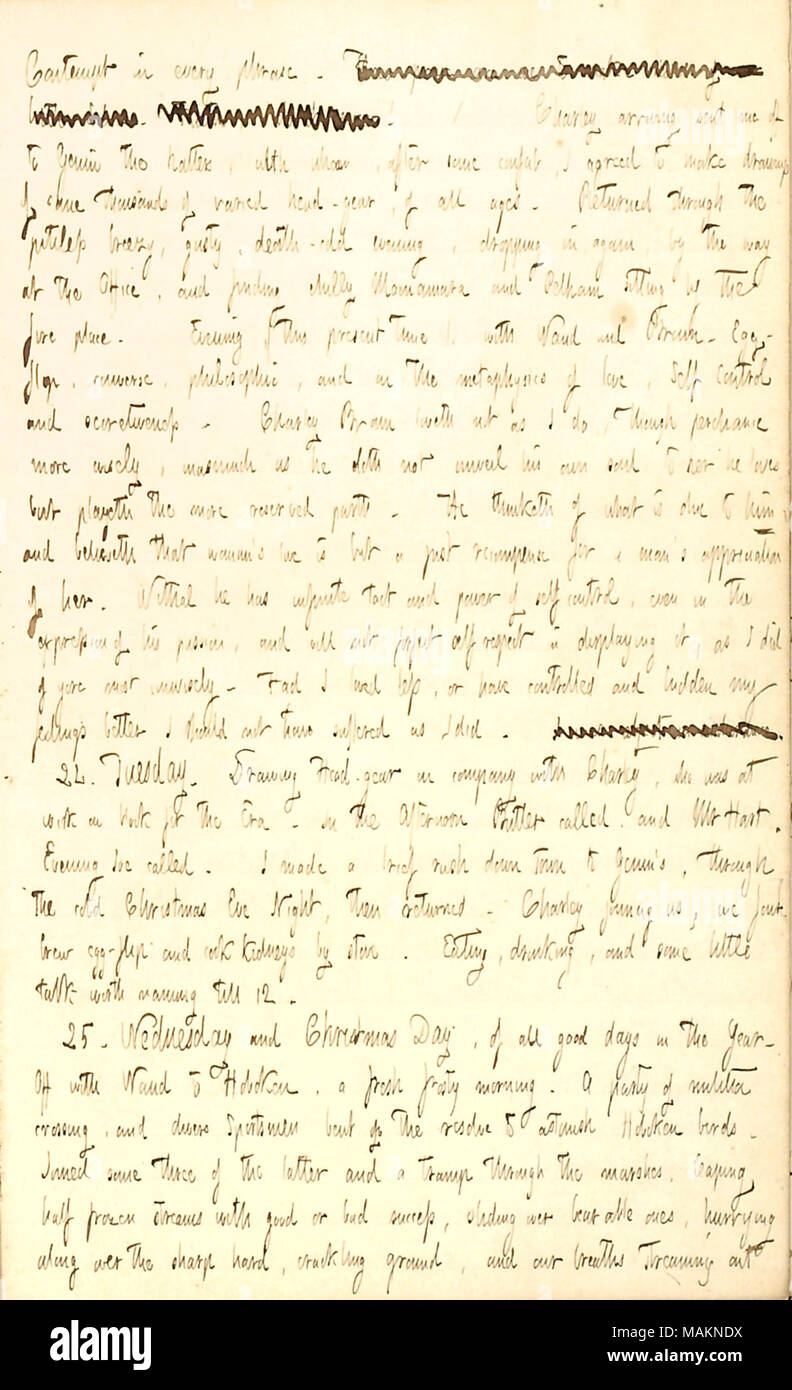 Contempt in every phrase.
Charley arriving sent me off
to Genin the hatter, with whom, after some confab, I agreed to make drawings
of some thousands of varied head-gear, of all ages. Returned through the
pitiless breezy, gusty, death-cold evening, dropping in again by the way
at the Office, and finding chilly Macnamara and Pelham sitting by the
fire place. Evening, this present time, with Waud and Brown. Egg-
flip, converse, philosophic, and on the metaphysics of love, Self Control
and secretiveness. Charley Brown loveth not as I do, though perchance
more wisely, inasmuch as he doth not unveil his own soul to her he loves
but playeth the more reserved part. He thinketh of what is due to him
and believeth that woman's love is but a just recompense for a man's appreciation
of her. Withal he has infinite tact and power of self control, even in the
expression of his passion, and will not forget self respect in displaying it, as I did
of yore most unwisely. Had I loved less, or have controlled and hidden my
feelings better I should not have suffered as I did.
24. Tuesday. Drawing Head-gear in company with Charley, who was at
work on block for the Era. In the Afternoon called, and Mr Hart.
Evening Joe called. I made a brief rush down town to Genin's, through
the cold Christmas Eve Night, then returned. Charley joining us, we four
brew egg-flip and cook kidneys by stove. Eating, drinking, and some little
talk worth naming till 12.
25. Wednesday and Christmas Day, of all good days in the Year.
Off with Waud to Hoboken, a fresh frosty morning. A party of militia
crossing, and divers Sportsmen bent on the resolve to astonish Hoboken birds.
Joined some three of the latter and a tramp through the marshes, leaping
half frozen streams with good or bad success, sliding over bearable ones, hurrying
along over the sharp hard, crackling ground, and our breaths streaming out
alamy
Image ID: MAKNDX
www.alamy.com